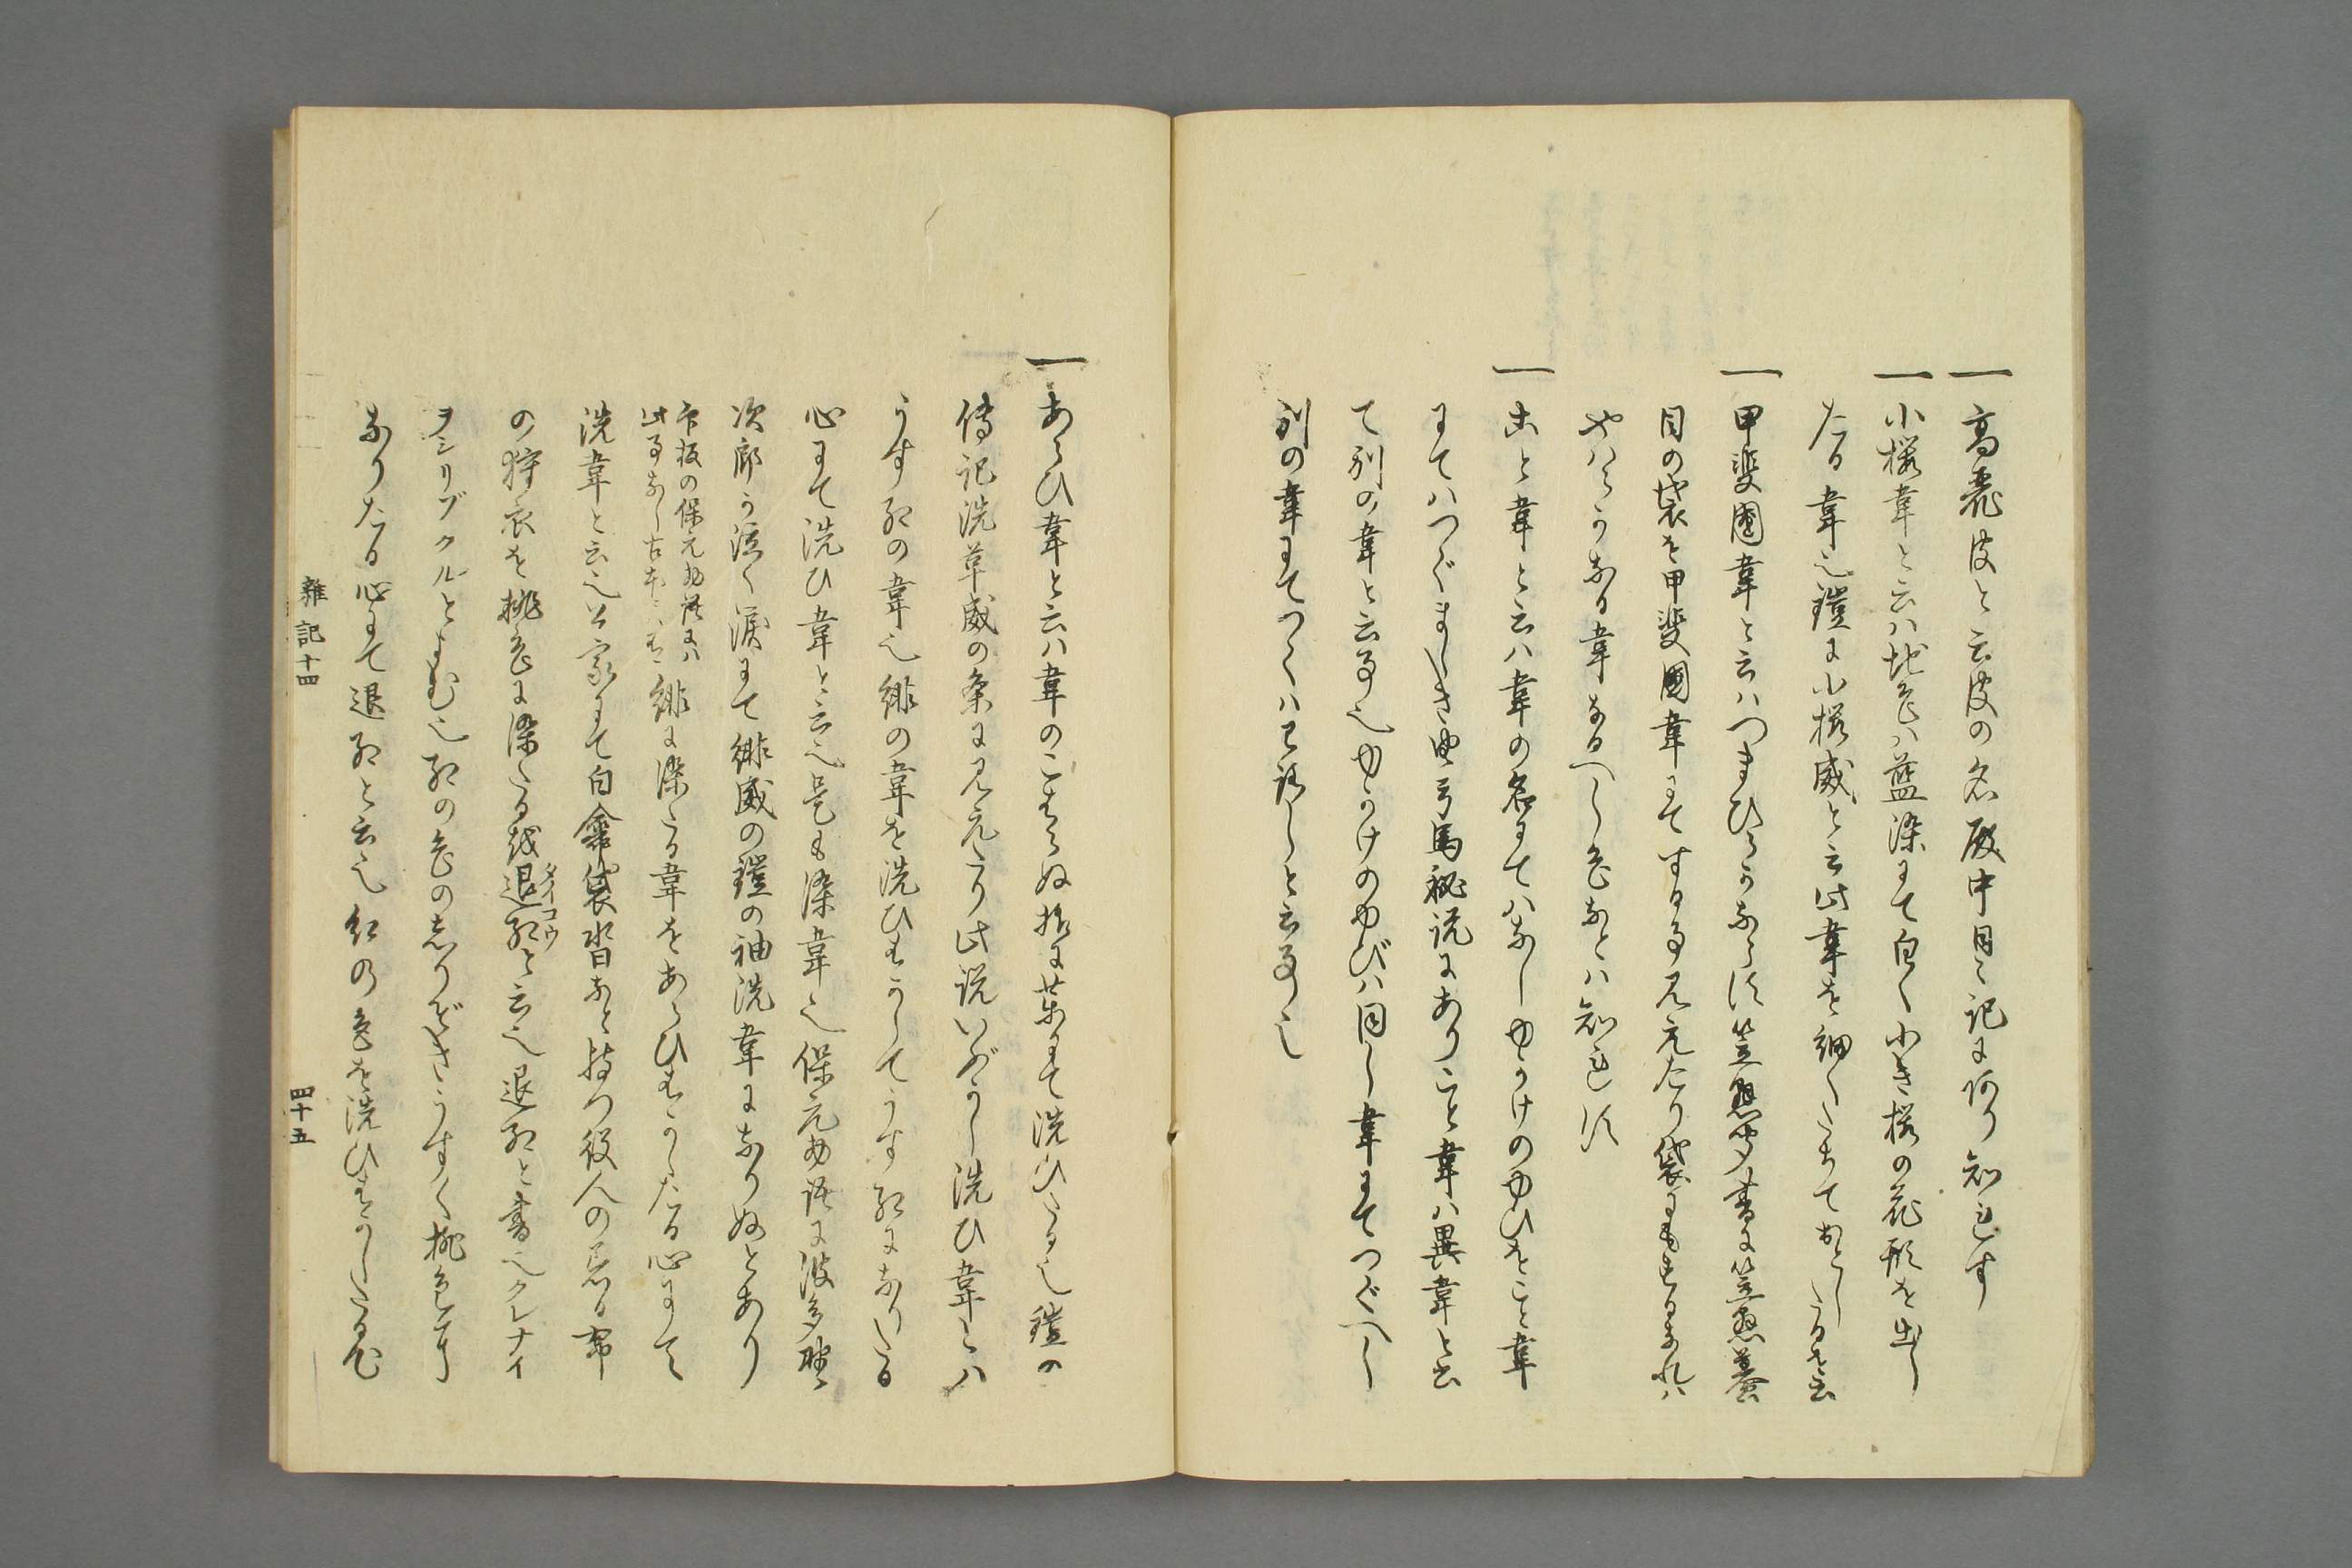 一 高麗皮と云皮の名殿中日々記にあり知れす
一 小桜韋と云ハ地色ハ藍染にて白く小き桜の花形を出し
たる韋也鎧に小桜威と云此韋を細くたちておとしたるを云
一 甲斐国韋と云ハつまひらかならす笠懸聞書に笠懸蟇
目の袋を甲斐国韋にてする事見えたり袋にもするなれハ
やハらかなる韋なるへし色なとハ知れす
一 こと韋と云ハ韋の名にてハなしゆかけのゆひをこと韋
にてハつぐましき由弓馬秘説にありこと韋ハ異韋と云
て別の韋と云事也ゆかけのゆびハ同し韋にてつぐへし
別の韋にてつくハわろしと云事也
一 あらひ韋と云ハ韋のこはらぬ様に薬にて洗ひたる也鎧の
傳記洗革威の条に見えたり此説いぶかし洗ひ韋とハ
うす紅の韋也緋の韋を洗ひすかしてうす紅になりたる
心にて洗ひ韋と云也是も染韋也保元物語に波多野
次郎か泣く涙にて緋威の鎧の袖洗韋になりぬとあり
印板の保元物語にハ
此事なし古本にハあり
緋に染たる韋をあらひすかしたる心にて
洗韋と云也公家にて白傘袋沓なと持つ役人の着る布
の狩衣を桃色に染たる越退紅タイコウと云也退紅と書てクレナイ
ヲシリゾクルとよむ也紅の色のしりぞきうすく桃色に
なりたる心にて退紅と云也紅の色を洗ひすかしたる心
雑記十四
四十五